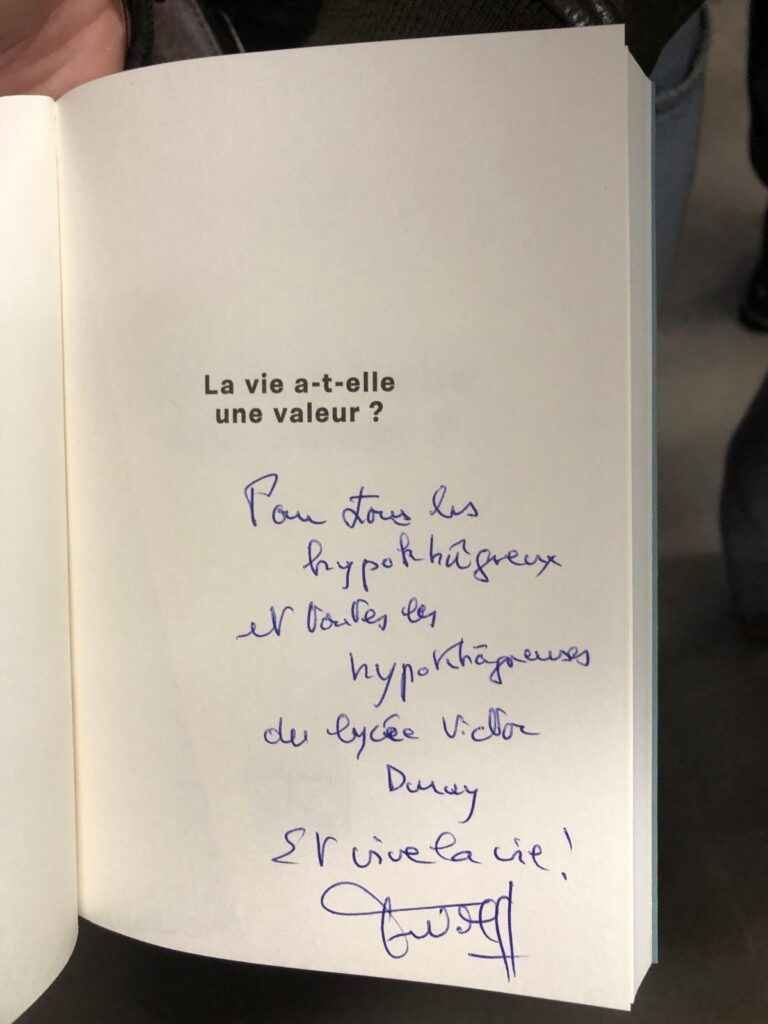 La vie a-t-elle
une valeur ?
Pour tous les
hypokhâgneux
et toutes les
hypokhâgneuses
du lycée Victor
Duruy
Et vive la vie !
FWolff